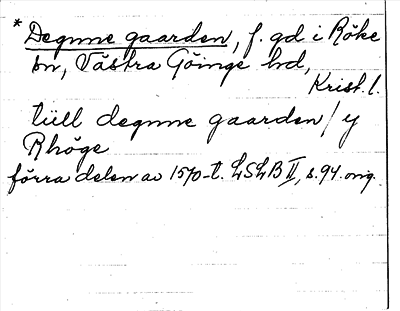 * Degnne gaarden, f. gd i Röke
sn, Västra Göinge hd,
Krist. l.
tiill degnne gaarden / y
Rhöge
förra delen av 1570-t. LSLB II, s. 94. orig.